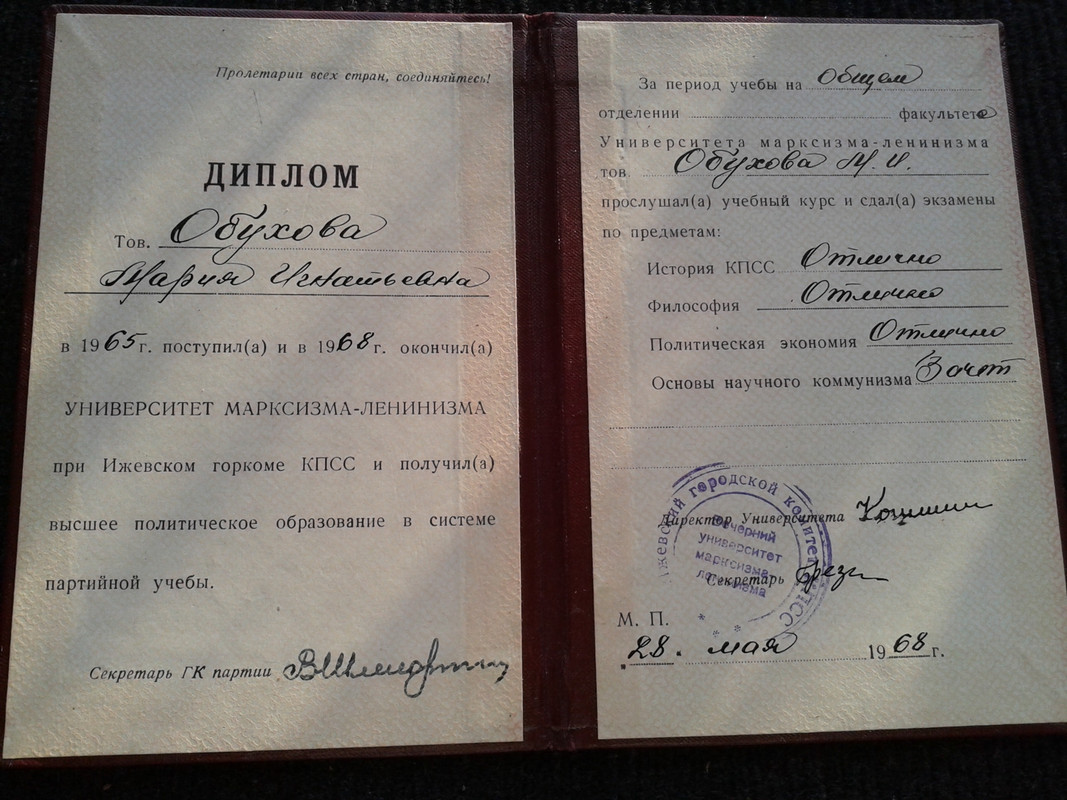 Пролетарии всех стран, соединяйтесь!
ДИПЛОМ
Тов. Обухова
Мария Игнатьевна
в 1965 г. поступил(а) и в 1968 г. окончил(а)
УНИВЕРСИТЕТ МАРКСИЗМА-ЛЕНИНИЗМА
при Ижевском горкоме КПСС и получил(а)
высшее политическое образование в системе
партийной учебы.
Секретарь ГК партии
За период учебы на общем
отделении факультете
Университета марксизма-ленинизма
тов. Обухова М.И.
прослушал(а) учебный курс и сдал(а) экзамены
по предметам:
История КПСС Отлично
Философия Отлично
Политическая экономия Отлично
Основы научного коммунизма Зачет
Ижевский городской комитет КПСС
Вечерний
университет
марксизма-
ленинизма
Директор Университета
Секретарь
М. П.
28. мая 1968 г.